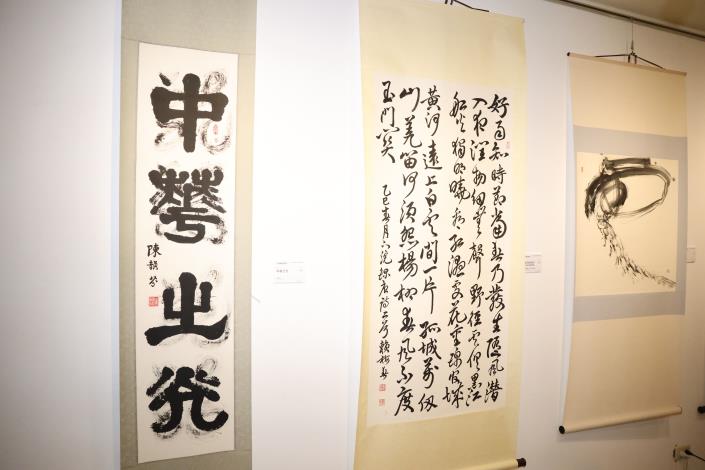 中華之光
陳
好雨知時節當春乃發生隨風潛
入夜潤物細無聲野徑雲俱黑江
船火獨明曉看紅濕處花重錦官城
黃河遠上白雲間一片孤城萬仞
山羌笛何須怨楊柳春風不度
玉門關
乙巳春月 錄唐詩二首